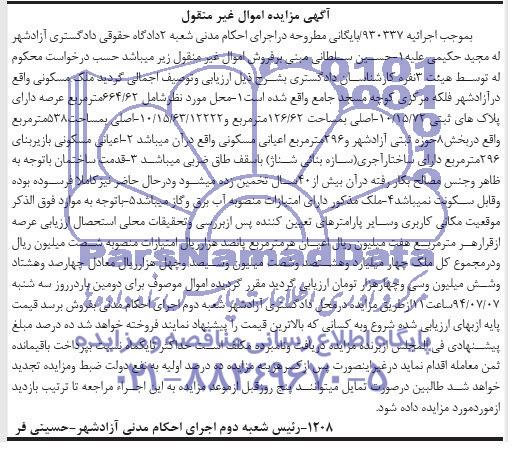 آگهی مزایده اموال غیر منقول
بموجب اجرائیه ۹۳۰۳۳۷/بایگانی مطروحه دراجرای احکام مدنی شعبه ۲دادگاه حقوقی دادگستری آزادشهر
له مجید حکیمی علیه۱-حسین سلطانی مبنی برفروش اموال غیر منقول زیر میباشد حسب درخواست محکوم
له توسط هیئت ۳نفره کارشناسان دادگستری بشرح ذیل ارزیابی وتوصیف اجمالی گردید ملک مسکونی واقع
درآزادشهر فلکه مرکزی کوچه مسجد جامع واقع شده است۱-محل مورد نظرشامل ۶۶۴/۶۲مترمربع عرصه دارای
پلاک های ثبتی ۱۰/۱۵/۷۲-اصلی بمساحت ۱۲۶/۶۲مترمربع و۱۰/۱۵/۶۳/۱۲۲۲۲-اصلی بمساحت۵۳۸مترمربع
واقع دربخش۸حوزه ثبتی آزادشهر و۲۹۶مترمربع اعیانی مسکونی واقع درآن میباشد ۲-اعیانی مسکونی بازیربنای
۲۹۶مترمربع دارای ساختارآجری(سازه بنائی شناژ) باسقف طاق ضربی میباشد ۳-قدمت ساختمان باتوجه به
ظاهر وجنس مصالح بکار رفته درآن بیش از۴۰سال تخمین زده میشود ودرحال حاضر نیزکاملا فرسوده بوده
وقابل سکونت نمیباشد۴-ملک مذکور دارای امتیازات منصوبه آب برق وگاز میباشد۵-باتوجه به موارد فوق الذکر
موقعیت مکانی کاربری وسایر پارامترهای تعیین کننده پس ازبررسی وتحقیقات محلی استحصال ارزیابی عرصه
ازقرارهر مترمربع هفت میلیون ریال اعیان هرمترمربع پانصد هزارریال امتیازات منصوبه شصت میلیون ریال
ودرمجموع کل ملک چهار میلیارد وهشتصد وشصت میلیون وسیصد وچهل هزارریال معادل چهارصد وهشتاد
وشش میلیون وسی وچهارهزار تومان ارزیابی گردید مقرر گردیده اموال موصوف برای دومین باردرروز سه شنبه
۹۴/۰۷/۰۷ساعت۱۱ازطریق مزایده درمحل دادگستری آزادشهر شعبه دوم اجرای احکام مدنی بفروش برسد قیمت
پایه ازبهای ارزیابی شده شروع وبه کسانی که بالاترین قیمت را پیشنهاد نمایند فروخته خواهد شد ده درصد مبلغ
پیشنهادی فی المجلس ازبرنده مزایده دریافت ونامبرده مکلف است حداکثر ازیکماه نسبت بپرداخت باقیمانده
ثمن معامله اقدام نماید درغیراینصورت پس ازکسر هزینه مزایده ده درصد اولیه به نفع دولت ضبط ومزایده تجدید
خواهد شد طالبین درصورت تمایل میتوانند پنج روزقبل ازموعد مزایده به این اجراء مراجعه تا ترتیب بازدید
ازموردمورد مزایده داده شود.
۱۲۰۸-رئیس شعبه دوم اجرای احکام مدنی آزادشهر-حسینی فر
ParsNamadData
پایگاه اطلاع رسانی مناقصه و مزایده
۰۲۱-۸۸۳۴۹۶۷۰-۵